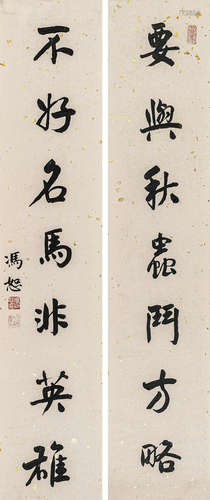 要與秋蟲鬥方略
不好名馬非英雄
馮恕